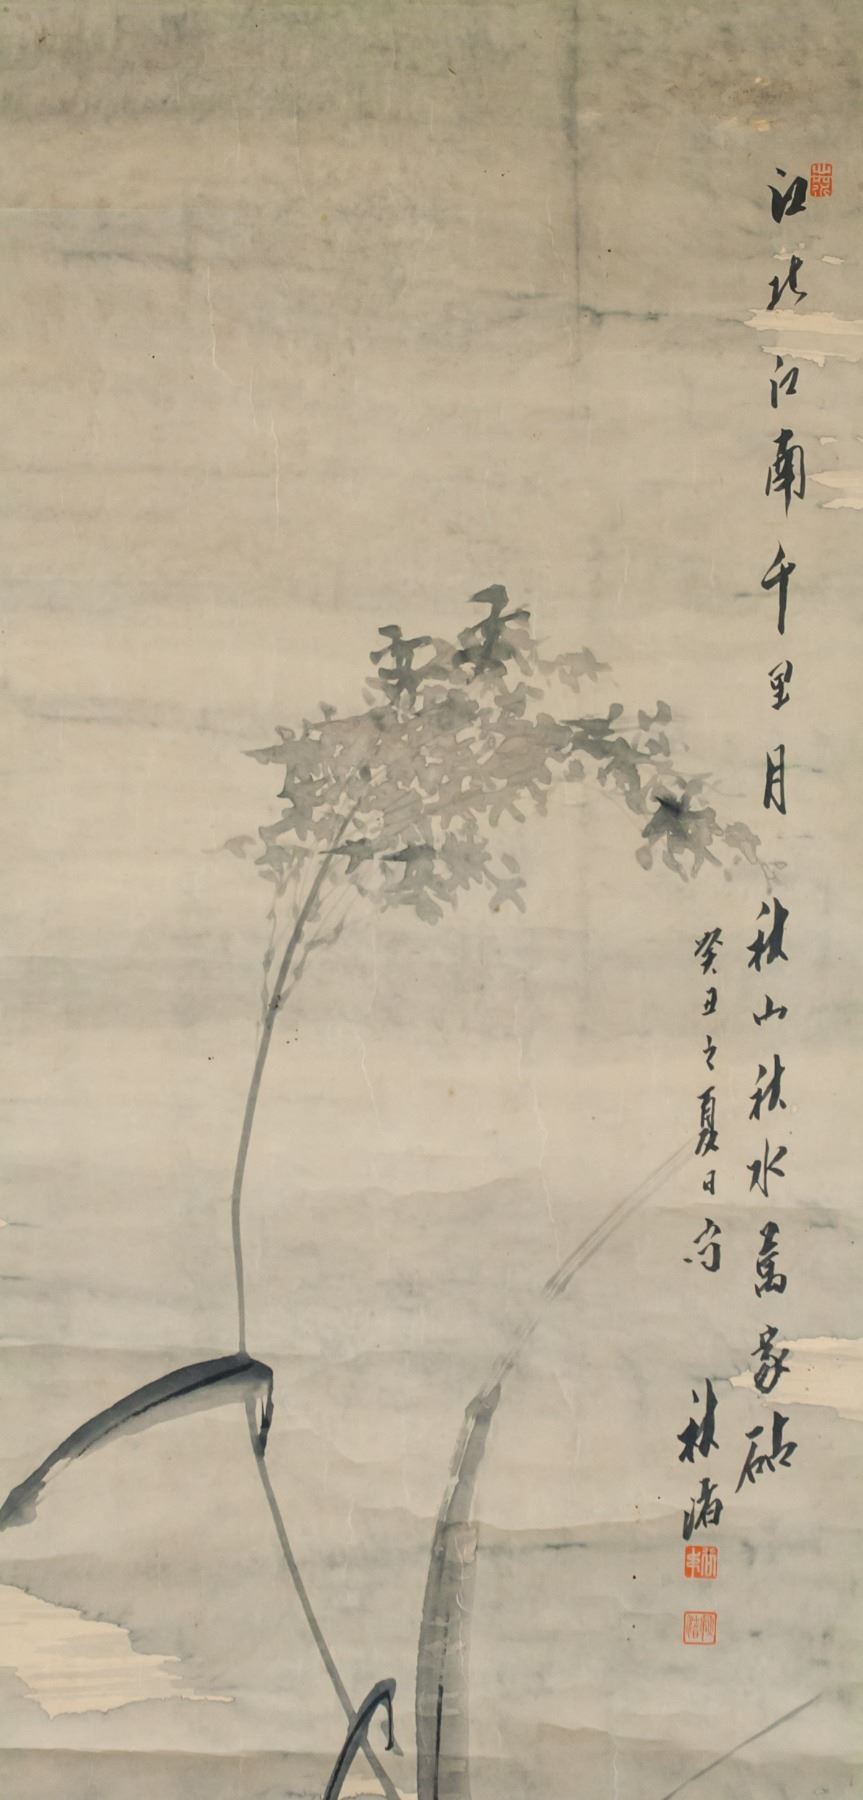 江北江南千里月
秋山秋水萬家砧
癸丑之夏日寫
秋渚